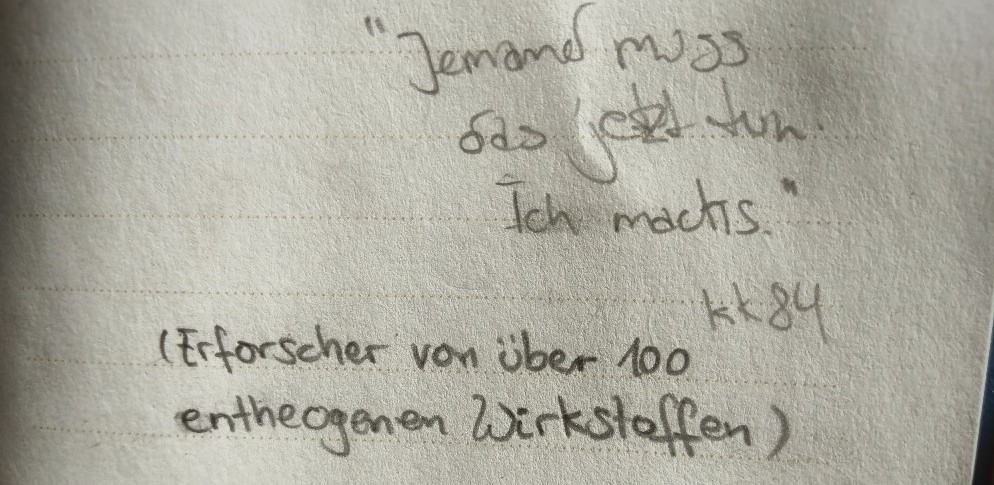 "Jemand muss
das jetzt tun.
Ich machs."
kk84
(Erforscher von über 100
entheogenen Wirkstoffen)